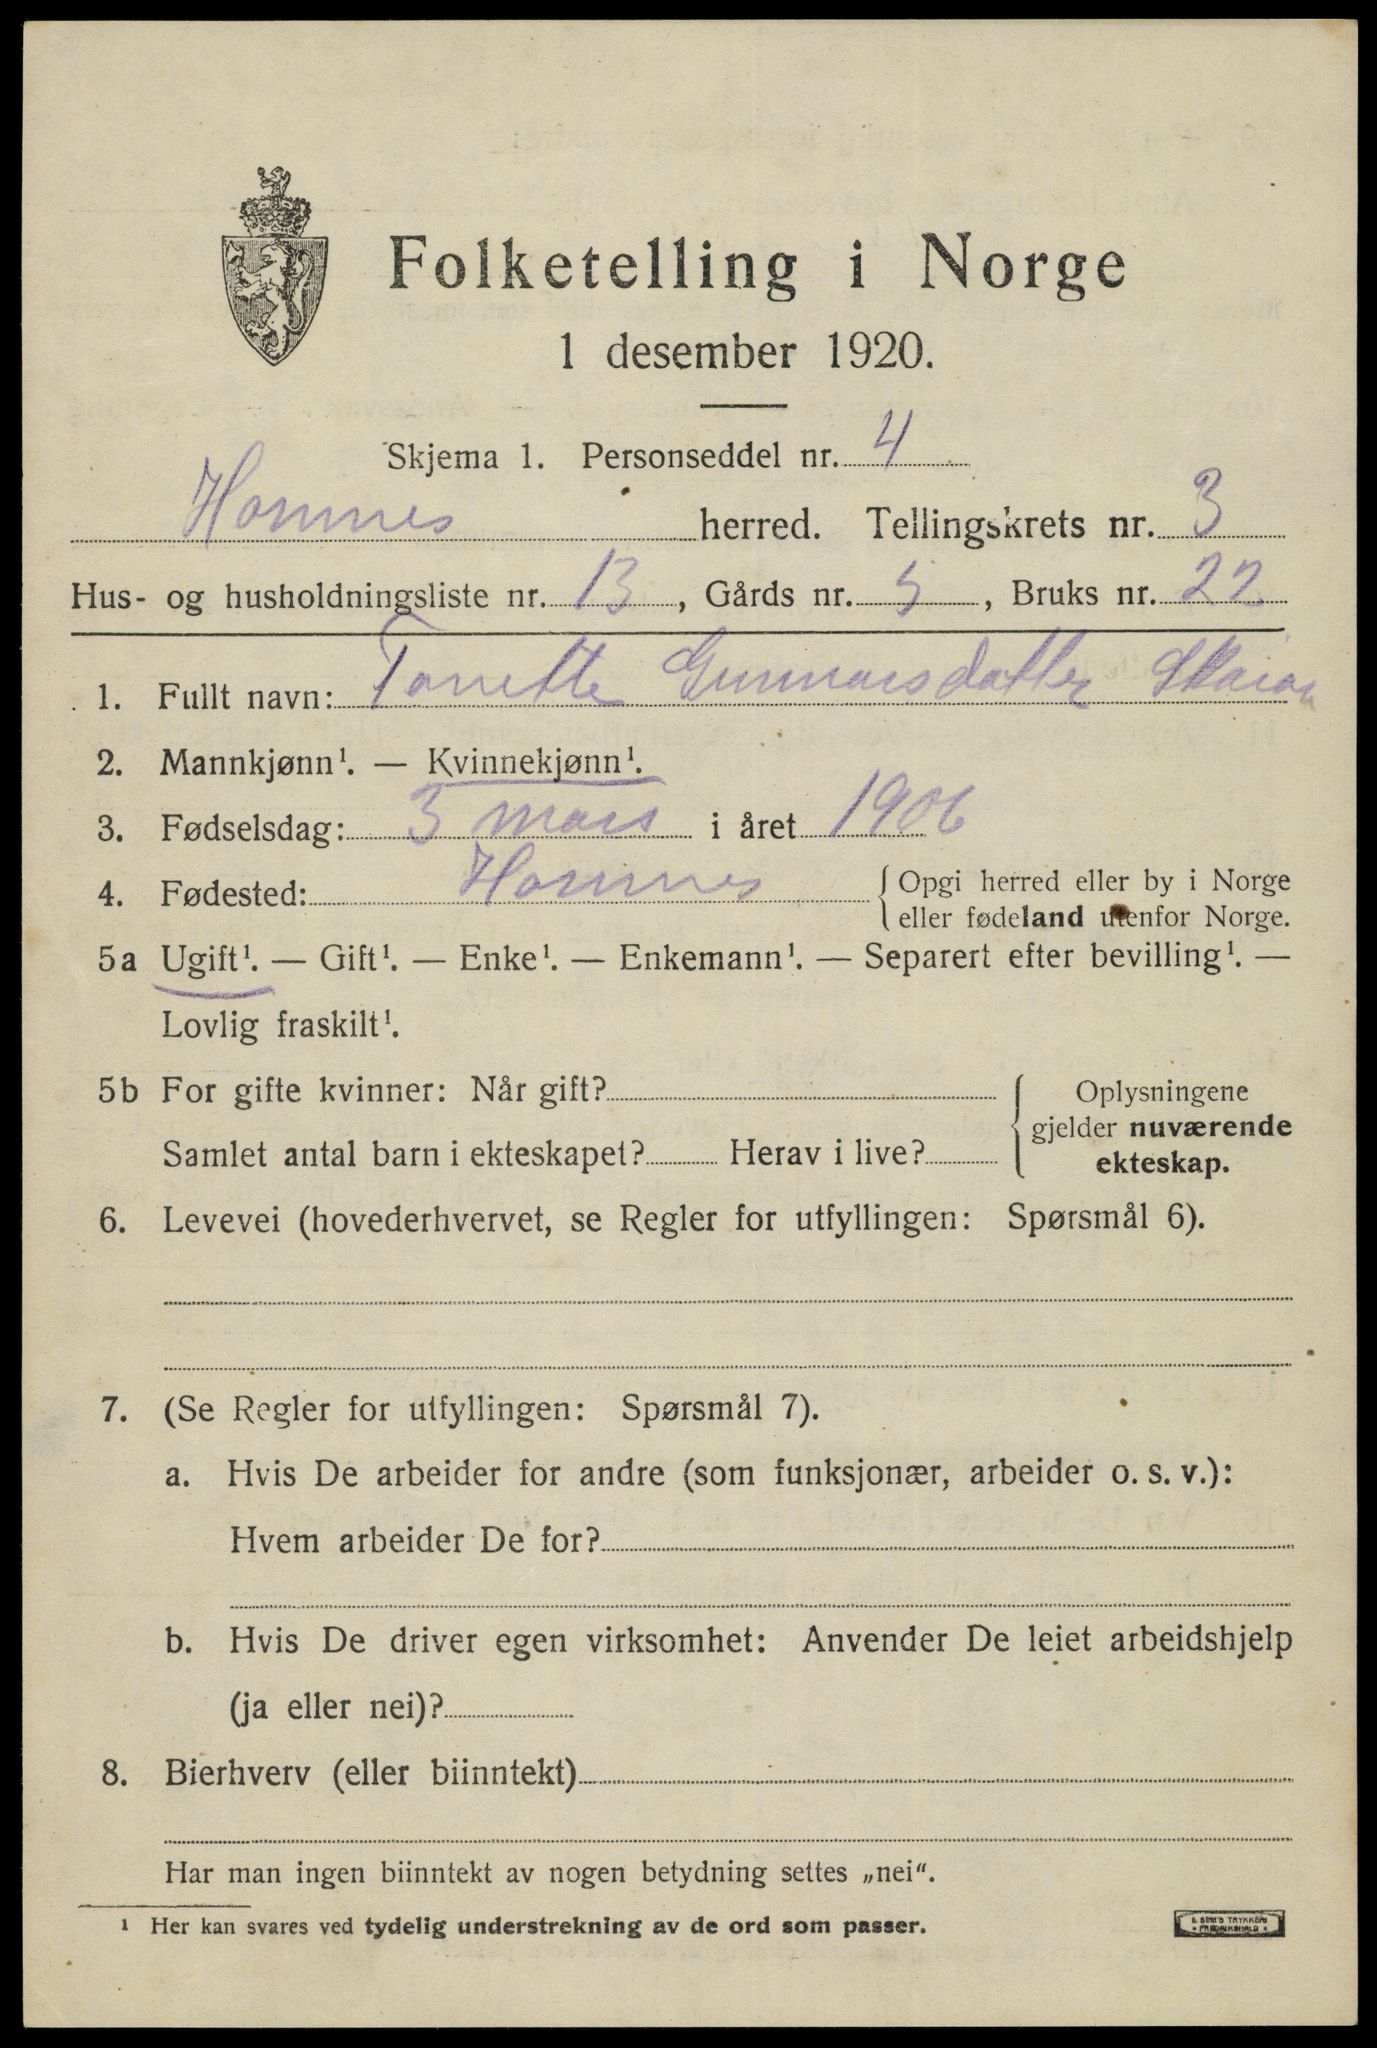 Folketelling i Norge
1 desember 1920.
Skjema 1. Personseddel nr. 4
Homnes herred. Tellingskrets nr. 3
Hus- og husholdningsliste nr. 13, Gårds nr. 5, Bruks nr. 22
1. Fullt navn: Tonette Gunnarsdatter
2. Mannkjønn¹. — Kvinnekjønn¹.
3. Fødselsdag: 3 mars i året 1906
4. Fødested: Homnes { Opgi herred eller by i Norge
eller fødeland utenfor Norge.
5a Ugift¹. — Gift¹. — Enke¹. — Enkemann¹. — Separert efter bevilling¹. —
Lovlig fraskilt¹.
5b For gifte kvinner: Når gift? { Oplysningene
gjelder nuværende
Samlet antal barn i ekteskapet? Herav i live? ekteskap.
6. Levevei (hovederhvervet, se Regler for utfyllingen: Spørsmål 6).
7. (Se Regler for utfyllingen: Spørsmål 7).
a. Hvis De arbeider for andre (som funksjonær, arbeider o. s. v.):
Hvem arbeider De for?
b. Hvis De driver egen virksomhet: Anvender De leiet arbeidshjelp
(ja eller nei)?
8. Bierhverv (eller biinntekt)
Har man ingen biinntekt av nogen betydning settes „nei“.
¹ Her kan svares ved tydelig understrekning av de ord som passer.